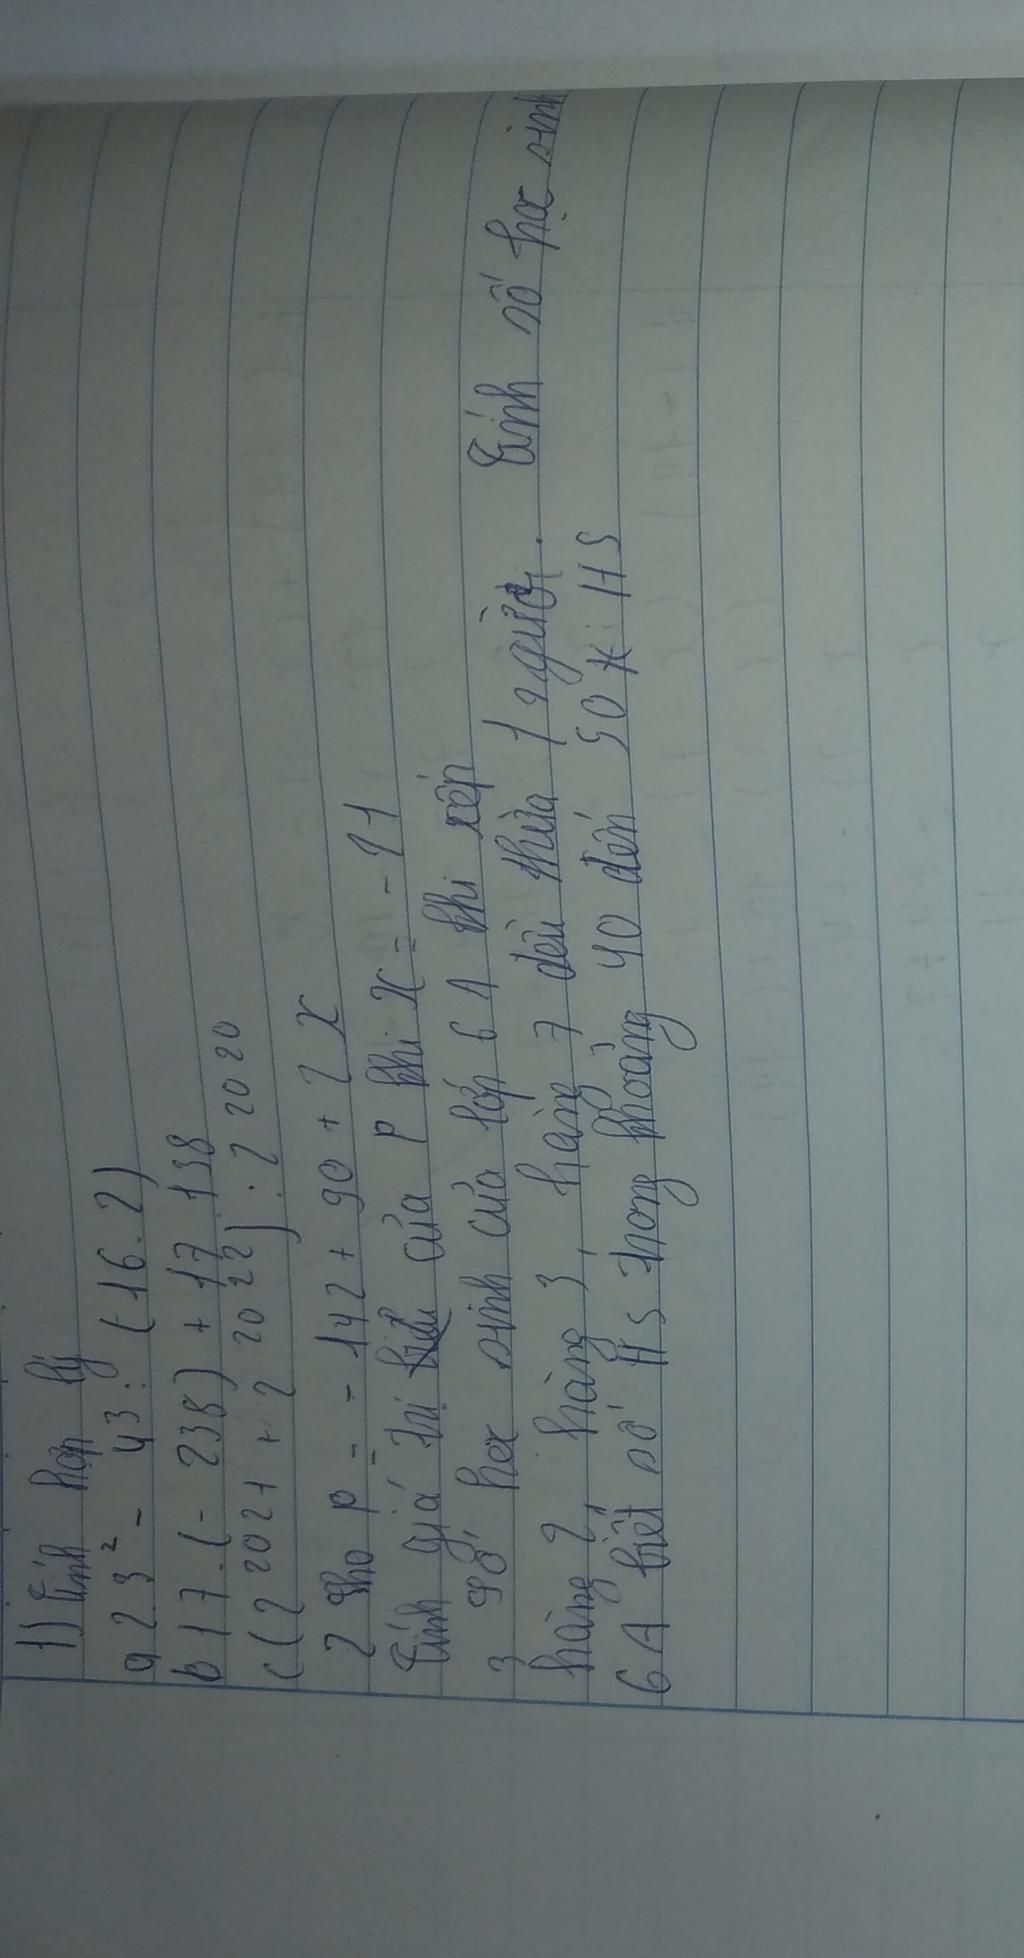 1) Tính hợp lý
a 2.3² - 43 : (16.2)
b 17.(-238) + 17.138
c (2 2021 + 2 2022) : 2 2020
2 Cho P = - 142 + 90 + 2 X
Tính giá trị biểu của P khi X = - 21
3 Số học sinh của lớp 6 A khi xếp
hàng 2, hàng 3, hàng 7 đều thừa 1 người. Tính số học sinh
6A biết số HS trong khoảng 40 đến 50 HS